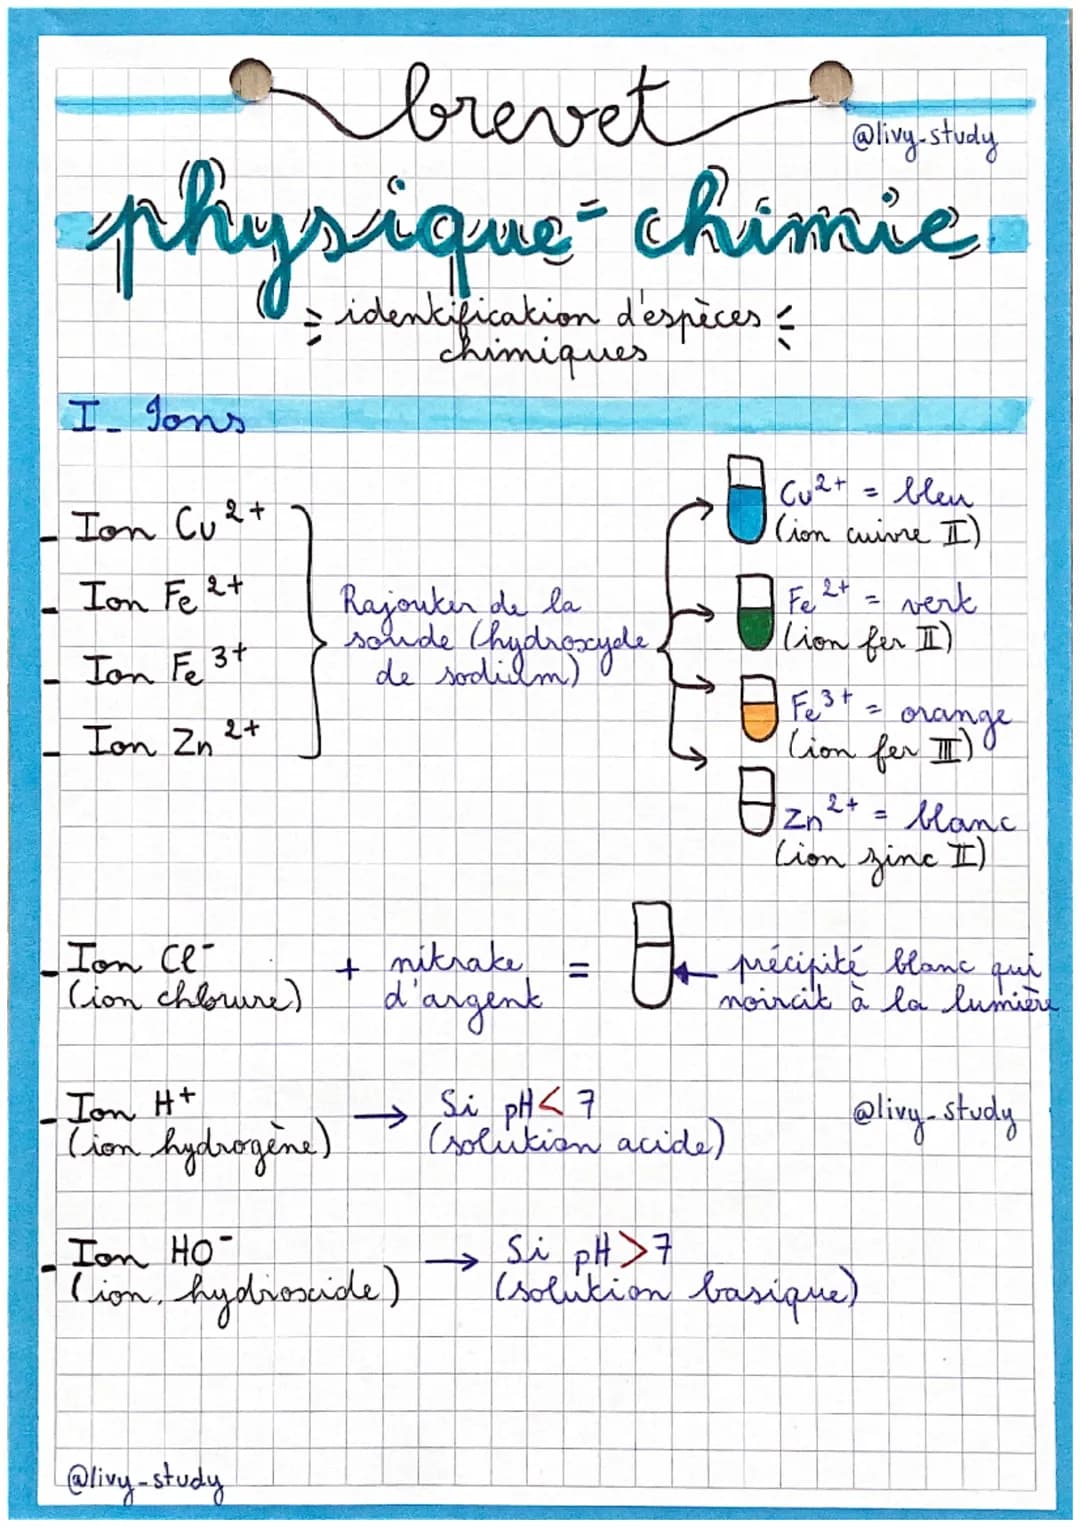 brevet
@livy-study
physique-chimie
identification d'espèces
chimiques
I- Ions
- Ion Cu²⁺
- Ion Fe²⁺
- Ion Fe³⁺
- Ion Zn²⁺
Rajouter de la
soude (hydroxyde
de sodium)
Cu²⁺ = bleu
(ion cuivre II)
Fe²⁺ = vert
(ion fer II)
Fe³⁺ = orange
(ion fer III)
Zn²⁺ = blanc
(ion zinc II)
- Ion Cl⁻ + nitrate = précipité blanc qui
(ion chlorure) d'argent noircit à la lumière
- Ion H⁺ → Si pH < 7
(ion hydrogène) (solution acide)
@livy-study
- Ion HO⁻ → Si pH > 7
(ion hydrioxide) (solution basique)
@livy-study